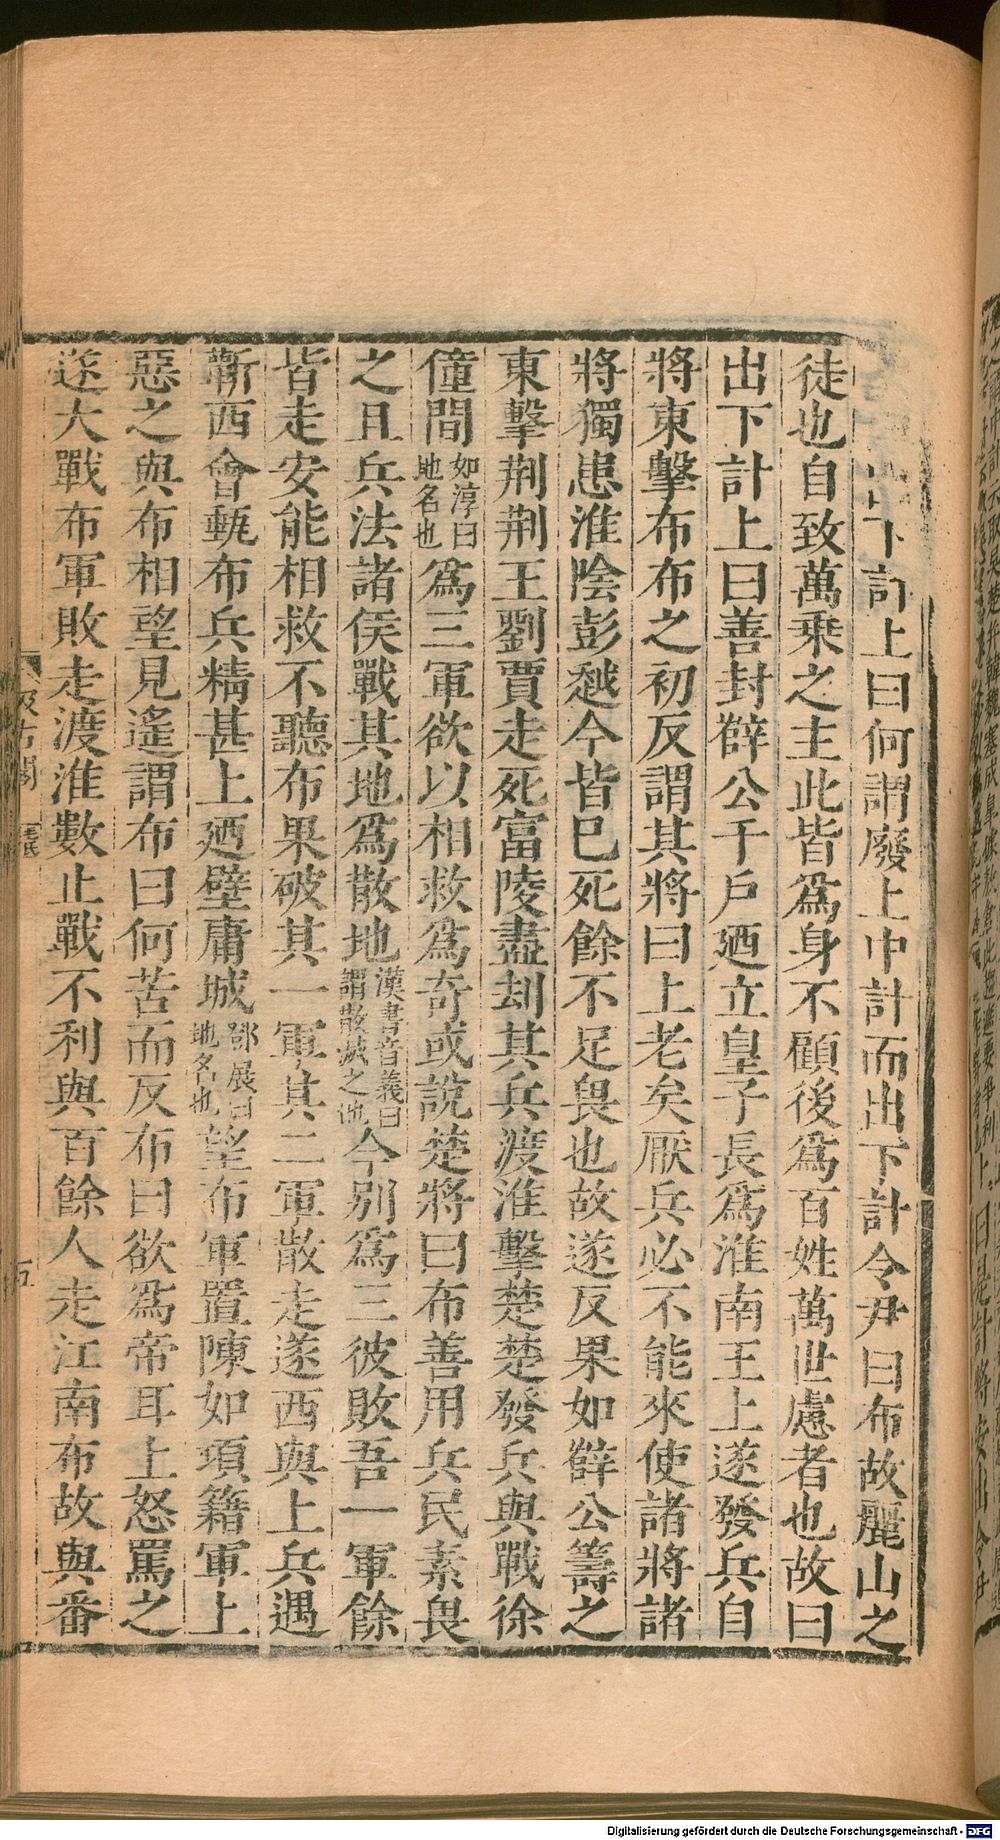 出下計上曰何謂廢上中計而出下計令尹曰布故麗山之
徒也自致萬乘之主此皆爲身不顧後爲百姓萬世慮者也故曰
出下計上曰善封薛公千戶廼立皇子長爲淮南王上遂發兵自
將東擊布布之初反謂其將曰上老矣厭兵必不能來使諸將諸
將獨患淮陰彭越今皆已死餘不足畏也故遂反果如薛公籌之
東擊荆荆王劉賈走死富陵盡刦其兵渡淮擊楚楚發兵與戰徐
僮間如淳曰地名也爲三軍欲以相救爲奇或說楚將曰布善用兵民素畏
之且兵法諸侯戰其地爲散地漢書音義曰謂散滅之地今别爲三彼敗吾一軍餘
皆走安能相救不聽布果破其一軍其二軍散走遂西與上兵遇
蘄西會甀布兵精甚上廼壁庸城鄧展曰地名也望布軍置陳如項籍軍上
惡之與布相望見遙謂布曰何苦而反布曰欲爲帝耳上怒罵之
遂大戰布軍敗走渡淮數止戰不利與百餘人走江南布故與番
汲古閣
五
Digitalisierung gefördert durch die Deutsche Forschungsgemeinschaft - DFG